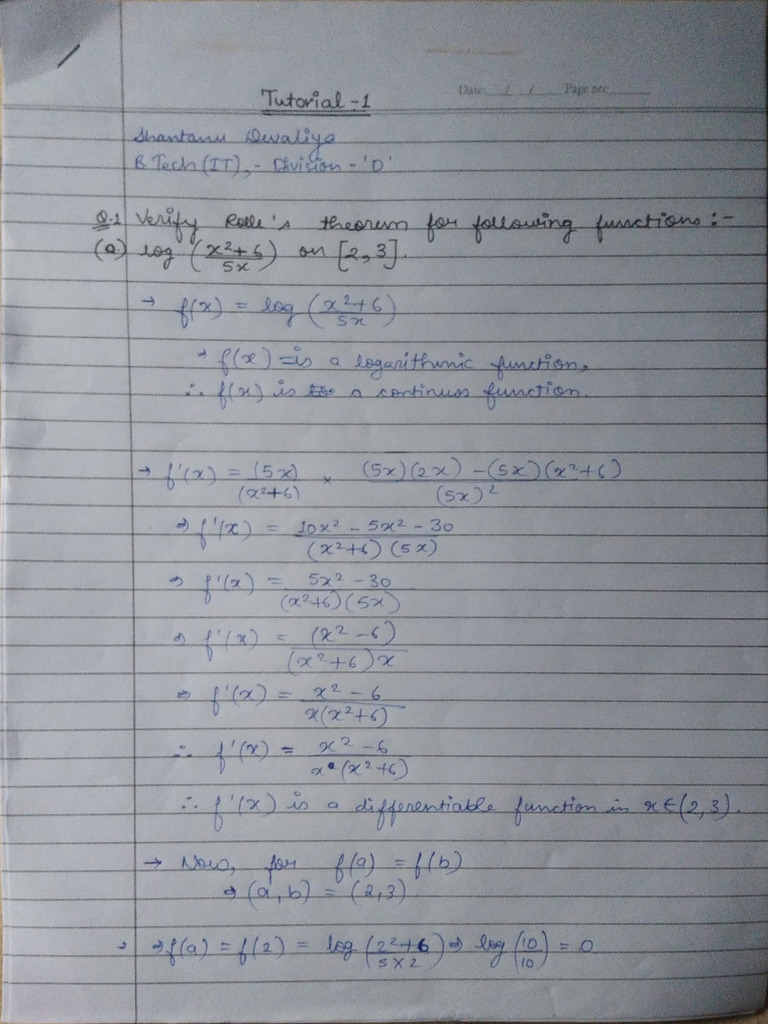 Date: / / Page no:
Tutorial - 1
Shantanu Devaliya
B.Tech (IT), - Division - 'D'
Q.1 Verify Rolle's theorem for following functions :-
(a) log (x²+6 / 5x) on [2, 3].
→ f(x) = log (x²+6 / 5x)
→ f(x) is a logarithmic function,
∴ f(x) is a continuos function.
→ f'(x) = (5x) / (x²+6) × (5x)(2x) - (5x)(x²+6) / (5x)²
⇒ f'(x) = 10x² - 5x² - 30 / (x²+6) (5x)
⇒ f'(x) = 5x² - 30 / (x²+6) (5x)
⇒ f'(x) = (x² - 6) / (x²+6)x
⇒ f'(x) = x² - 6 / x(x²+6)
∴ f'(x) = x² - 6 / x (x²+6)
∴ f'(x) is a differentiable function in x ∈ (2, 3).
→ Now, for f(a) = f(b)
⇒ (a, b) = (2, 3)
⇒ f(a) = f(2) = log (2²+6 / 5×2) ⇒ log (10 / 10) = 0